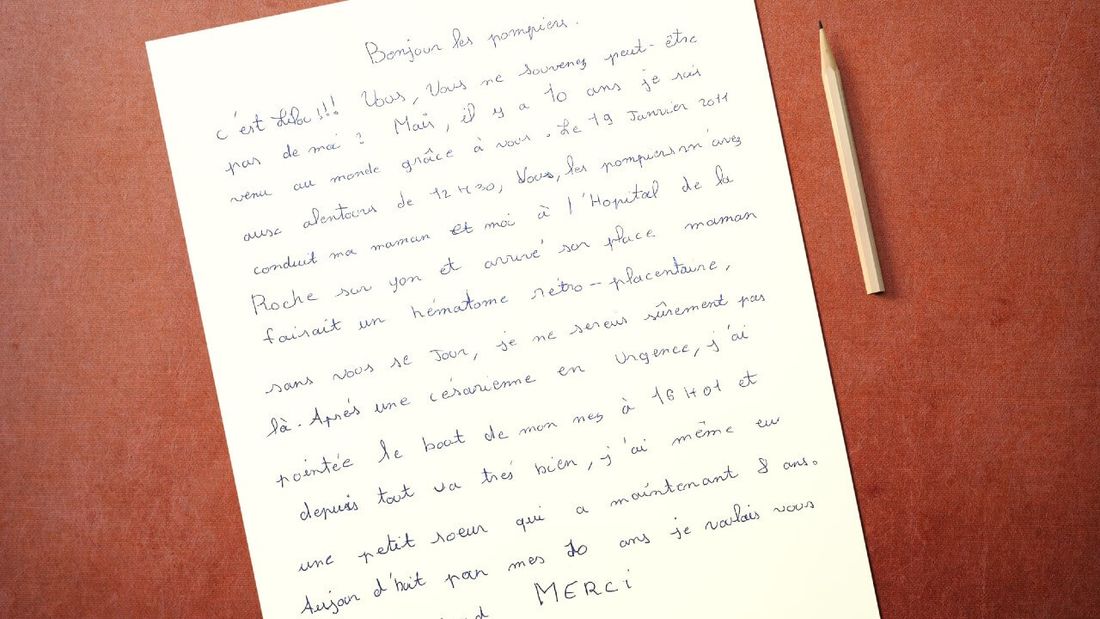 Bonjour les pompiers.
c'est Lilou!!! Vous, Vous ne souvenez peut-être
pas de moi? Mais, il y a 10 ans je suis
venu au monde grâce à vous. Le 19 Janvier 2011
aux alentours de 12H30, Vous, les pompiers m'avez
conduit ma maman et moi à l'Hopital de la
Roche sur yon et arrivé sur place maman
faisait un hématome rétro-placentaire,
sans vous se Jour, je ne serais sûrement pas
là. Après une césarienne en Urgence, j'ai
pointée le bout de mon nez à 16H01 et
depuis tout va trés bien, j'ai même eu
une petit soeur qui a maintenant 8 ans.
Aujour d'huit pour mes 10 ans je voulais vous
MERCi